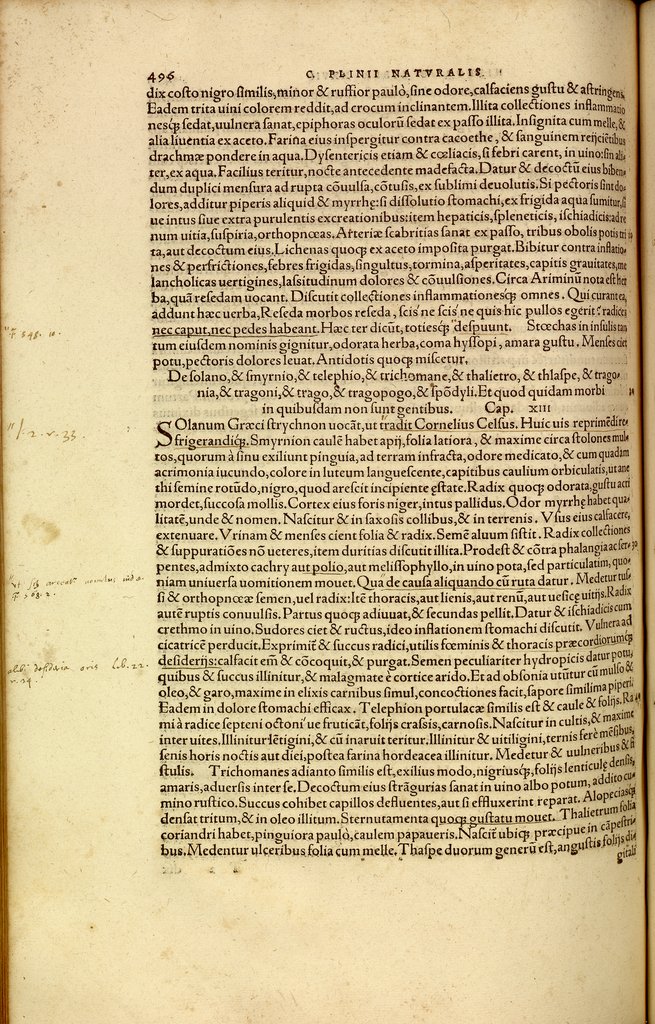 496
C. PLINII NATVRALIS.
dix costo nigro similis,minor & ruffior paulò,sine odore,calfaciens gustu & astringens.
Eadem trita uini colorem reddit,ad crocum inclinantem.Illita collectiones inflammatio
nesq; sedat,uulnera sanat,epiphoras oculorū sedat ex passo illita.Insignita cum melle,&
alia liuentia ex aceto.Farina eius inspergitur contra cacoethe, & sanguinem reijciētibus
drachmæ pondere in aqua.Dysentericis etiam & cœliacis,si febri carent,in uino:sin ali
ter,ex aqua.Facilius teritur,nocte antecedente madefacta.Datur & decoctū eius biben
dum duplici mensura ad rupta cōuulsa,cōtusis,ex sublimi deuolutis.Si pectoris sint do
lores,additur piperis aliquid & myrrhę:si dissolutio stomachi,ex frigida aqua sumitur,si
ue intus siue extra purulentis excreationibus:item hepaticis,spleneticis, ischiadicis:adre
num uitia,suspiria,orthopnœas.Arteriæ scabritias sanat ex passo, tribus obolis potis tri
ta,aut decoctum eius.Lichenas quoq; ex aceto imposita purgat.Bibitur contra inflatio
nes & perfrictiones,febres frigidas,singultus,tormina,asperitates,capitis grauitates,me
lancholicas uertigines,lassitudinum dolores & cōuulsiones.Circa Ariminū nota est her
ba,quā resedam uocant. Discutit collectiones inflammationesq; omnes. Qui curant ea,
addunt hæc uerba,Reseda morbos reseda, scis ne scis ne quis hic pullos egerit? radices
nec caput,nec pedes habeant.Hæc ter dicūt,totiesq; despuunt. Stœchas in insulis tan
tum eiusdem nominis gignitur,odorata herba,coma hyssopi, amara gustu. Menses ciet
potu,pectoris dolores leuat. Antidotis quoq; miscetur.
De solano,& smyrnio,& telephio,& trichomane,& thalietro,& thlaspe,& trago
nia,& tragoni,& trago,& tragopogo,& spōdyli.Et quod quidam morbi
in quibusdam non sunt gentibus. Cap. XIII
SOlanum Græci strychnon uocāt,ut tradit Cornelius Celsus. Huic uis reprimēdi re
frigerandiq;. Smyrnion caulē habet apij,folia latiora, & maxime circa stolones mul
tos,quorum à sinu exiliunt pinguia,ad terram infracta,odore medicato,& cum quadam
acrimonia iucundo,colore in luteum languescente,capitibus caulium orbiculatis,ut ane
thi semine rotūdo,nigro,quod arescit incipiente ęstate.Radix quoq; odorata,gustu acri
mordet,succosa mollis.Cortex eius foris niger,intus pallidus.Odor myrrhę habet qua
litatē,unde & nomen. Nascitur & in saxosis collibus,& in terrenis. Vsus eius calfacere,
extenuare.Vrinam & menses cient folia & radix.Semē aluum sistit. Radix collectiones
& suppuratiōes nō ueteres,item duritias discutit illita.Prodest & cōtra phalangia ac ser
pentes,admixto cachry aut polio,aut melissophyllo,in uino pota,sed particulatim,quo
niam uniuersa uomitionem mouet.Qua de causa aliquando cū ruta datur. Medetur tus
si & orthopnœæ semen,uel radix:Itē thoracis,aut lienis,aut renū,aut uesicæ uitijs.Radix
autē ruptis conuulsis.Partus quoq; adiuuat,& secundas pellit.Datur & ischiadicis cum
crethmo in uino.Sudores ciet & ructus,ideo inflationem stomachi discutit. Vulnera ad
cicatricē perducit.Exprimit̄ & succus radici,utilis fœminis & thoracis præcordiorumq;
desiderijs:calfacit em̄ & cōcoquit,& purgat.Semen peculiariter hydropicis datur potu,
quibus & succus illinitur,& malagmate è cortice arido.Et ad obsonia utūtur cū mulso &
oleo,& garo,maxime in elixis carnibus simul,concoctiones facit,sapore simillima piperi.
Eadem in dolore stomachi efficax. Telephion portulacæ similis est & caule & folijs.Ra
mi à radice septeni octoni'ue fruticāt,folijs crassis,carnosis.Nascitur in cultis,& maxime
inter uites.Illinitur lētigini,& cū inaruit teritur.Illinitur & uitiligini,ternis ferè mēsibus,
senis horis noctis aut diei,postea farina hordeacea illinitur. Medetur & uulneribus & fi
stulis. Trichomanes adianto similis est,exilius modo,nigriusq;,folijs lenticulę densis,
amaris,aduersis inter se.Decoctum eius strāgurias sanat in uino albo potum,addito cu
mino rustico.Succus cohibet capillos defluentes,aut si effluxerint reparat. Alopeciasq;
densat tritum,& in oleo illitum. Sternutamenta quoq; gustatu mouet. Thalietrum folia
coriandri habet,pinguiora paulò,caulem papaueris.Nascit̄ ubiq; præcipue in cāpestri
bus.Medentur ulceribus folia cum melle. Thaspe duorum generū est,angustis folijs di
gitali